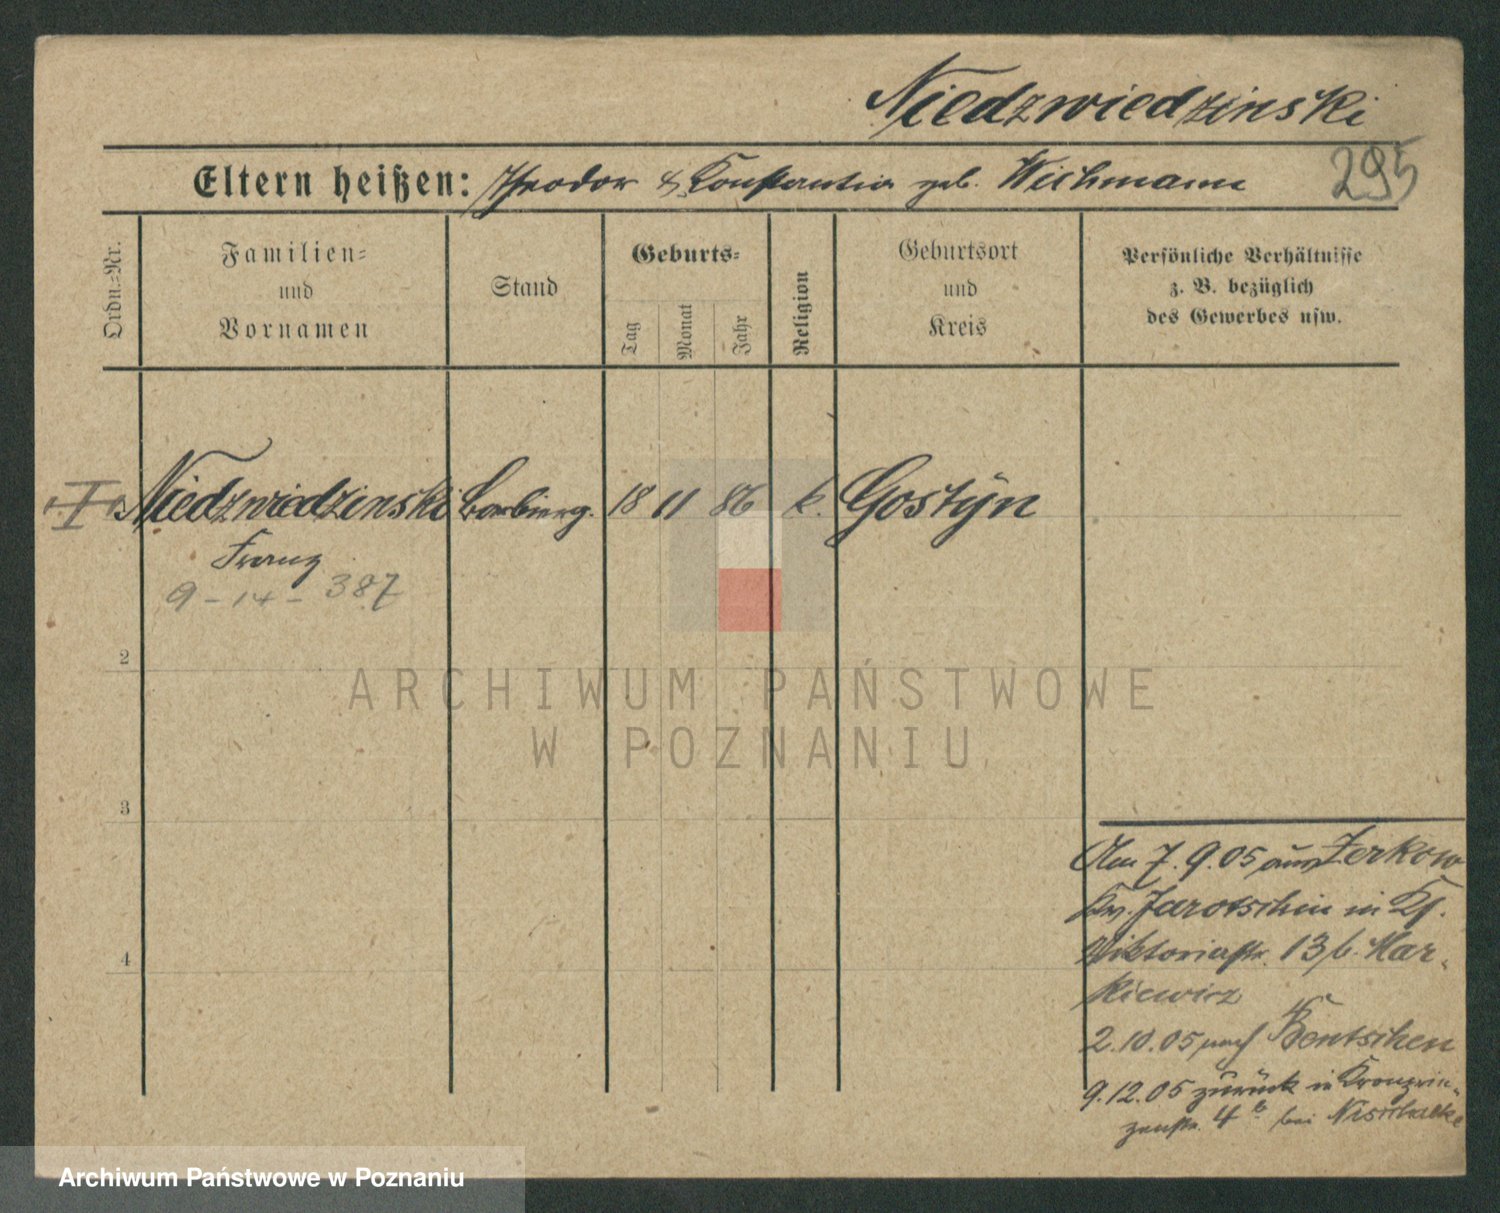 Niedzwiedzinski
Eltern heißen: Theodor & Konstantia geb. Wichmann
295
Ordn.=Nr.
Familien=
und
Vornamen
Stand
Geburts=
Tag
Monat
Jahr
Religion
Geburtsort
und
Kreis
Persönliche Verhältnisse
z. B. bezüglich
des Gewerbes usw.
I Niedzwiedzinski Barbierg. 18 11 86 k. Gostyn
Franz
9 - 14 - 387
2
3
4
Am 7. 9. 05 aus Zerkow
Jarotschin in
Viktoriastr. 13 b. Mar-
kiewicz
2. 10. 05 nach Bentschen
9. 12. 05 zurück in Kronprin-
zenstr. 4 bei
ARCHIWUM PAŃSTWOWE
W POZNANIU
Archiwum Państwowe w Poznaniu